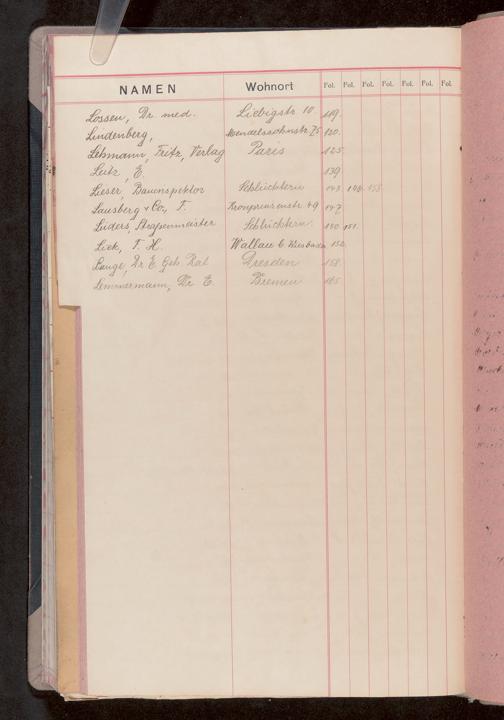 NAMEN Wohnort Fol. Fol. Fol. Fol. Fol. Fol. Fol.
Lossen, Dr. med. Liebigstr. 10 119.
Lindenberg, Mendelssohnstr. 75 120.
Lehmann, Fritz, Verlag Paris 125.
Leitz, E. 139
Lieser, Bauinspektor Schlüchtern 143 148 155
Lausberg & Co., T. Kronprinzenstr. 49 147
Lüders, Schlüchtern. 150 151.
Liek, T. H. Wallau b. Wiesbaden 152.
Lange, Dr. E. Geh. Rat Dresden 158.
Lemmermann, Dr. E. Bremen 165.